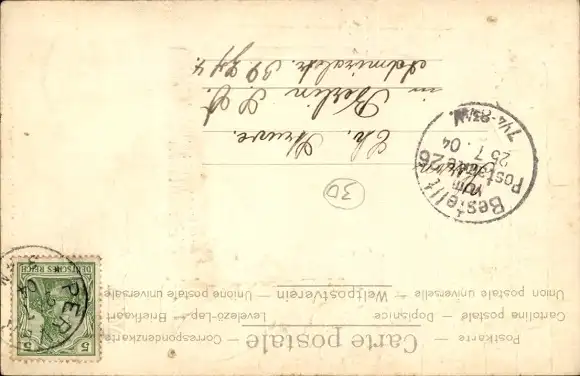 Postkarte — Carte postale — Correspondenzkarte
Cartolina postale — Dopisnice — Levelező-Lap — Briefkaart
Union postale universelle — Weltpostverein — Unione postale universale
Ch. Struve.
in Berlin S.
Admiralstr.
30
Bestellt
vom
Postamte 26
25 7. 04
7¼-8½
DEUTSCHES REICH
5
5